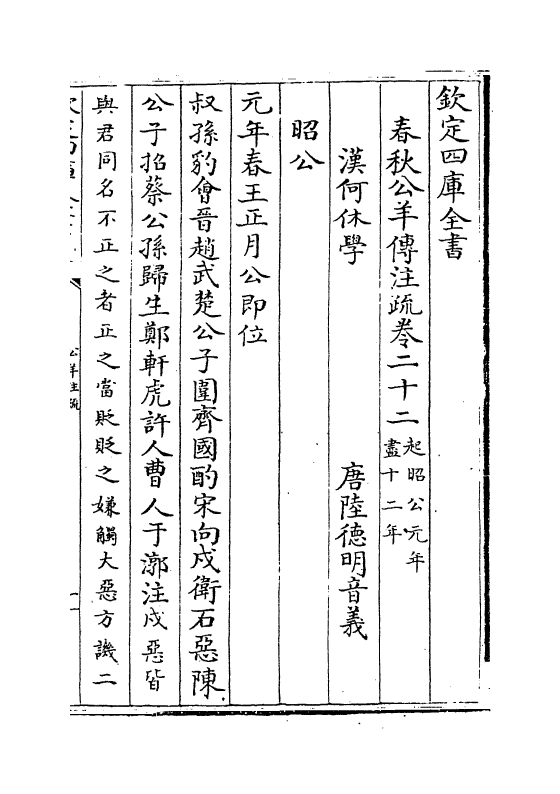 欽定四庫全書
春秋公羊傳注疏卷二十二起昭公元年
盡十二年
漢何休學 唐陸德明音義
昭公
元年春王正月公即位
叔孫豹會晉趙武楚公子圍齊國酌宋向戍衛石惡陳
公子招蔡公孫歸生鄭軒虎許人曹人于漷注戍惡皆
與君同名不正之者正之當貶貶之嫌觸大惡方譏二
公羊注疏